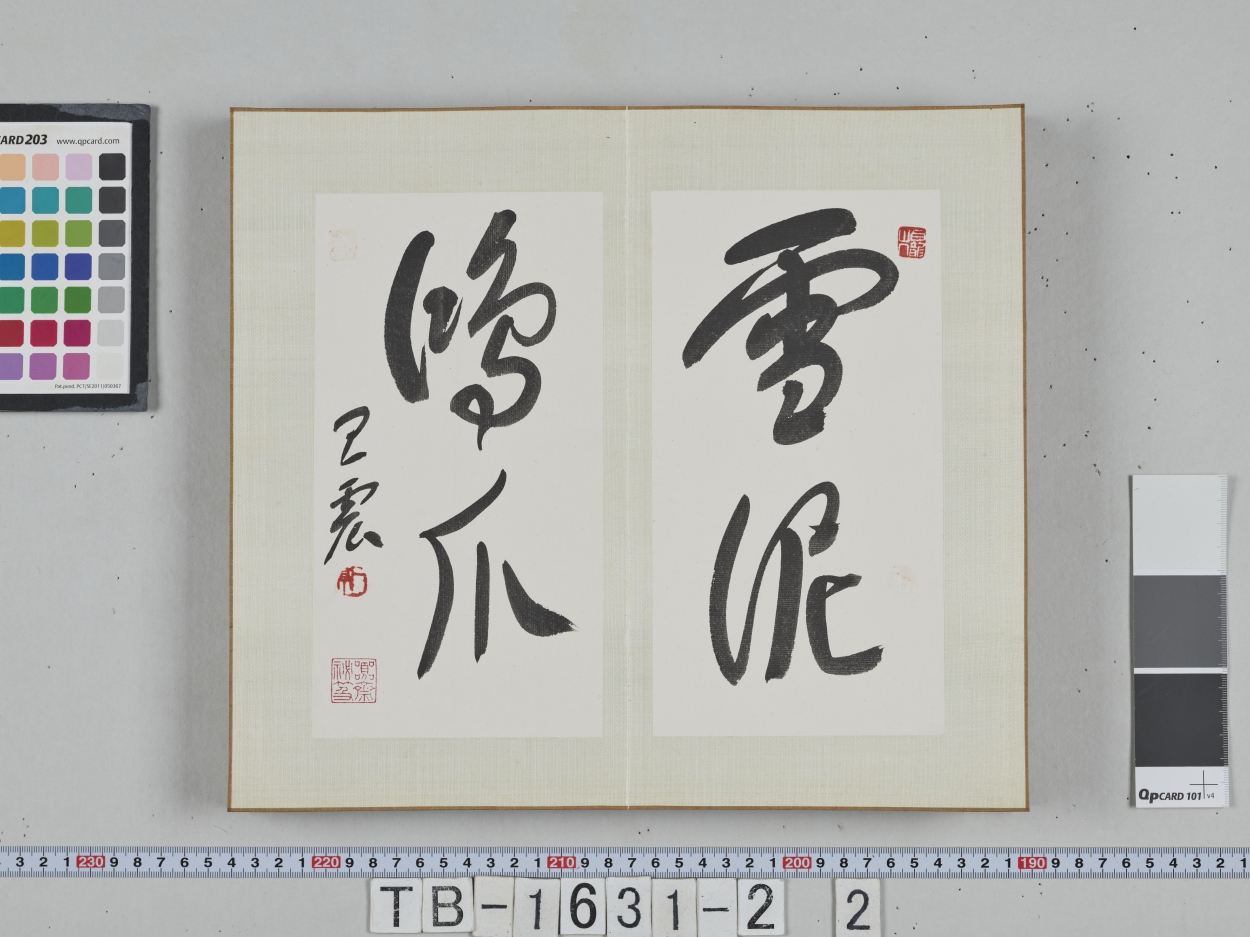 雪泥
鴻爪
王震
CARD203 www.qpcard.com
Pat.pend. PCT/SE2011/050367
QPCARD 101 v4
3 2 1 230 9 8 7 6 5 4 3 2 1 220 9 8 7 6 5 4 3 2 1 210 9 8 7 6 5 4 3 2 1 200 9 8 7 6 5 4 3 2 1 190 9 8 7 6 5 4 3 2 1
TB-1631-2 2